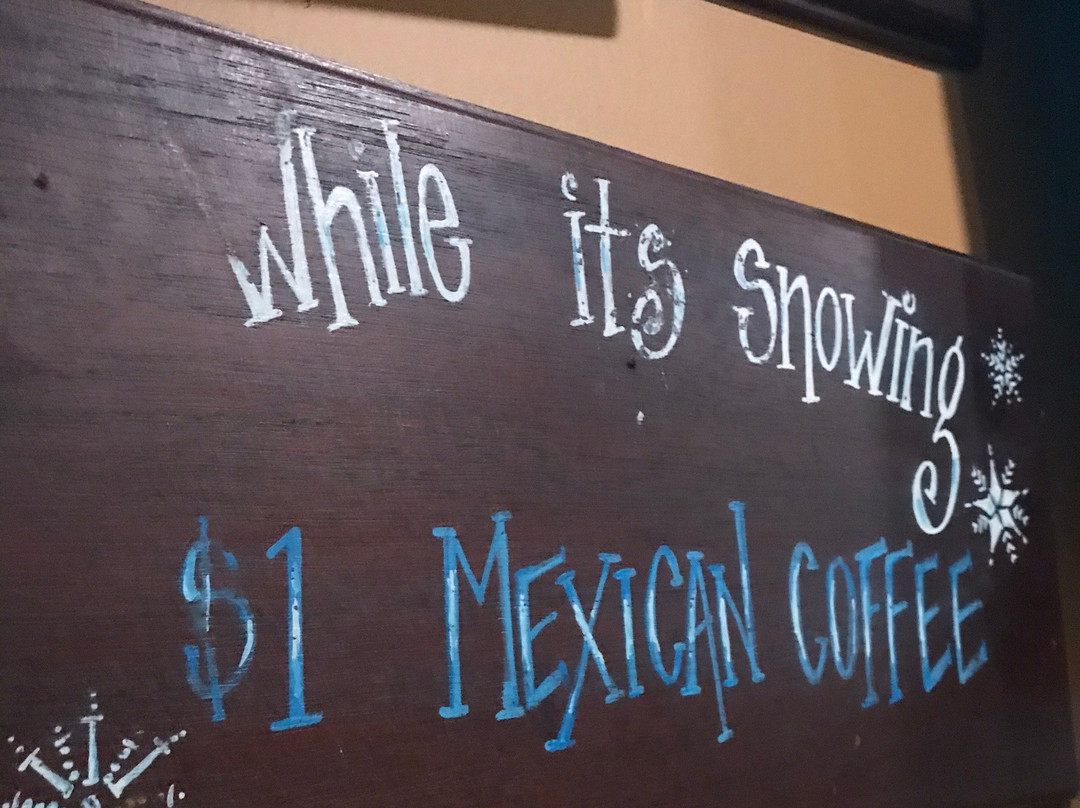 while its snowing
$1 MEXICAN COFFEE